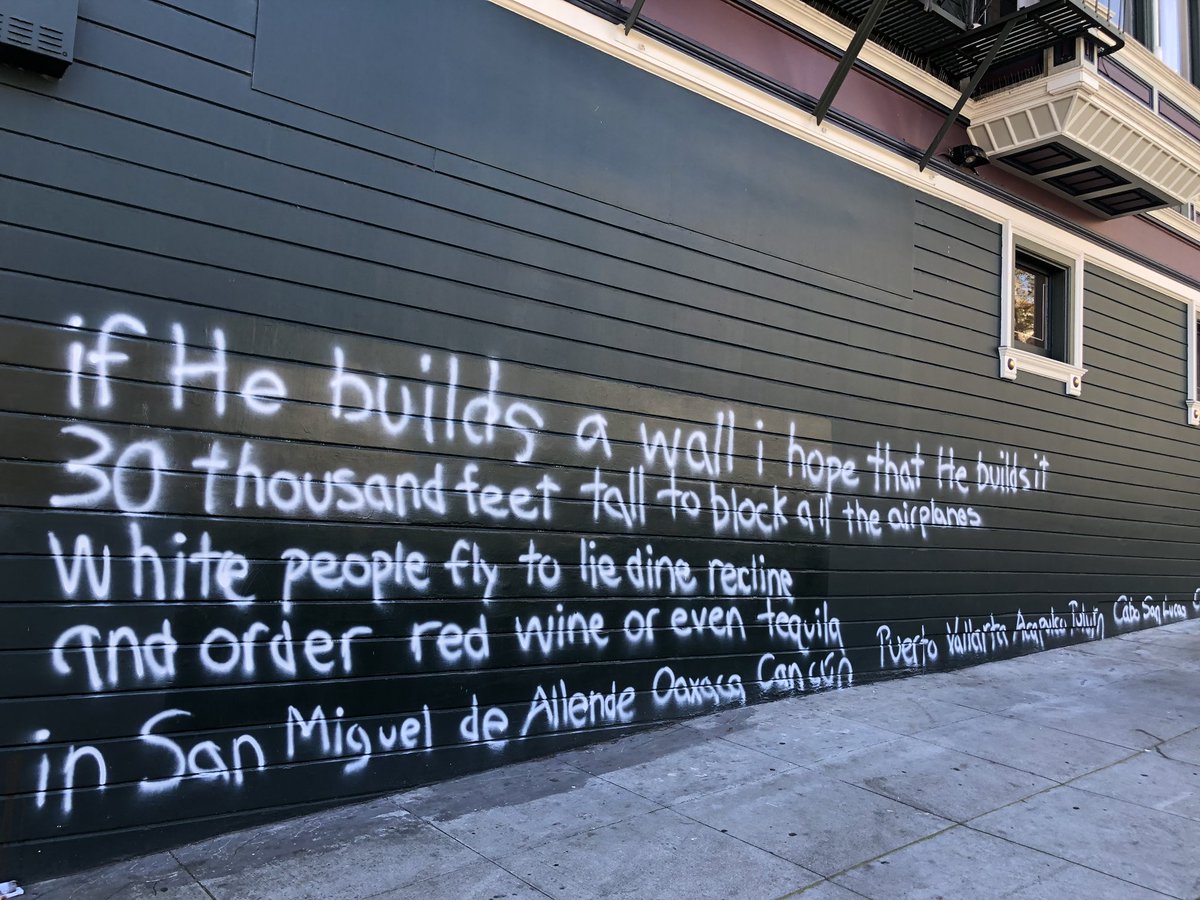 if He builds a wall i hope that He builds it
30 thousand feet tall to block all the airplanes
White people fly to lie dine recline
and order red wine or even tequila
in San Miguel de Allende Oaxaca Cancún Puerto Vallarta Acapulco Tulum Cabo San Lucas